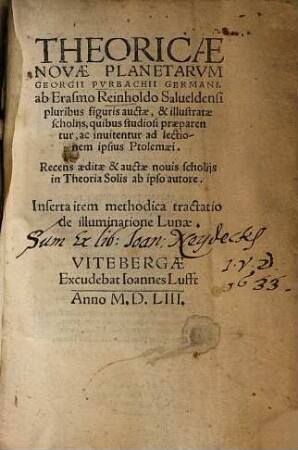 THEORICÆ
NOVÆ PLANETARVM
GEORGII PVRBACHII GERMANI.
ab Erasmo Reinholdo Salueldensi
pluribus figuris auctæ, & illustratæ
scholijs, quibus studiosi præparen
tur, ac inuitentur ad lectio-
nem ipsius Ptolemæi.
Recens æditæ & auctæ nouis scholijs
in Theoria Solis ab ipso autore.
Inserta item methodica tractatio
de illuminatione Lunæ.
Sum Ex lib: Ioan: Heydeck
VITEBERGÆ
Excudebat Ioannes Lufft
Anno M. D. LIII.
1633.